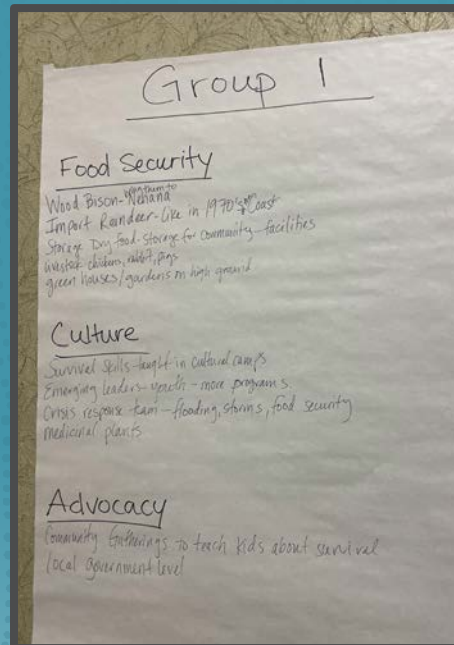 Group 1
Food Security
Wood Bison-bring them to Nenana
Import Reindeer-Like in 1970's on Coast
Storage Dry food-storage for community-facilities
livestock chickens, rabbit, pigs
green houses/gardens on high ground
Culture
Survival skills-taught in cultural camps
Emerging leaders-youth-more programs
Crisis response team-flooding, storms, food security
medicinal plants
Advocacy
Community Gatherings to teach kids about survival
local government level